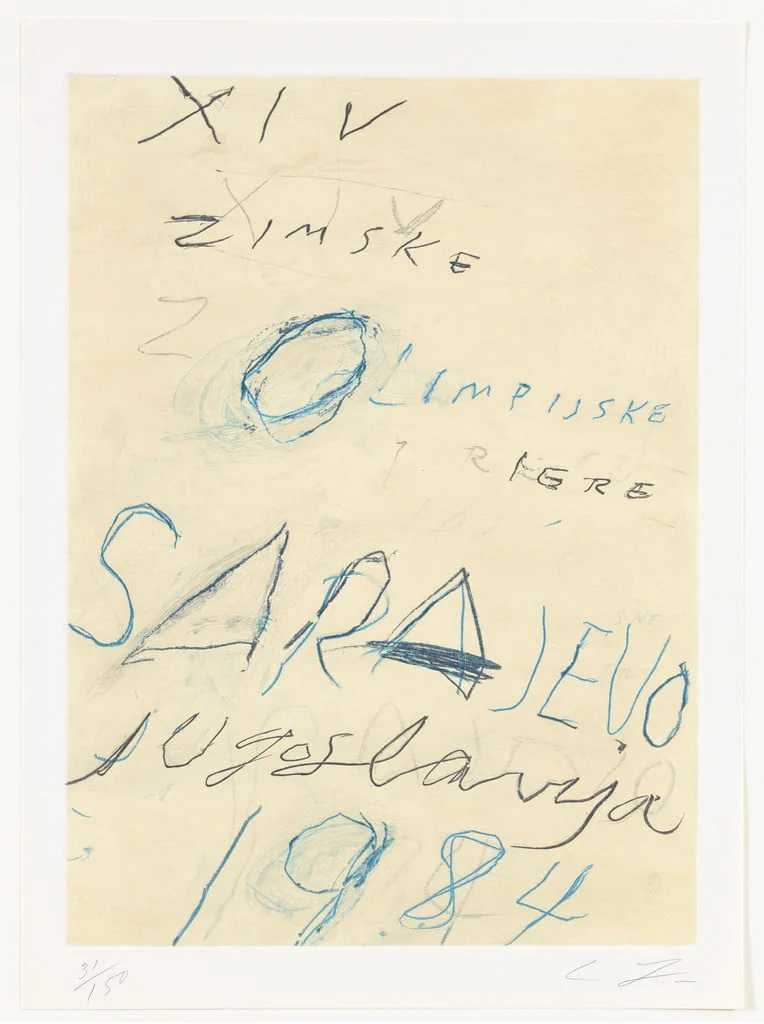 XIV
XIV
ZIMSKE
Z
OLIMPIJSKE
SARAJEVO
Jugoslavija
1984
31/150